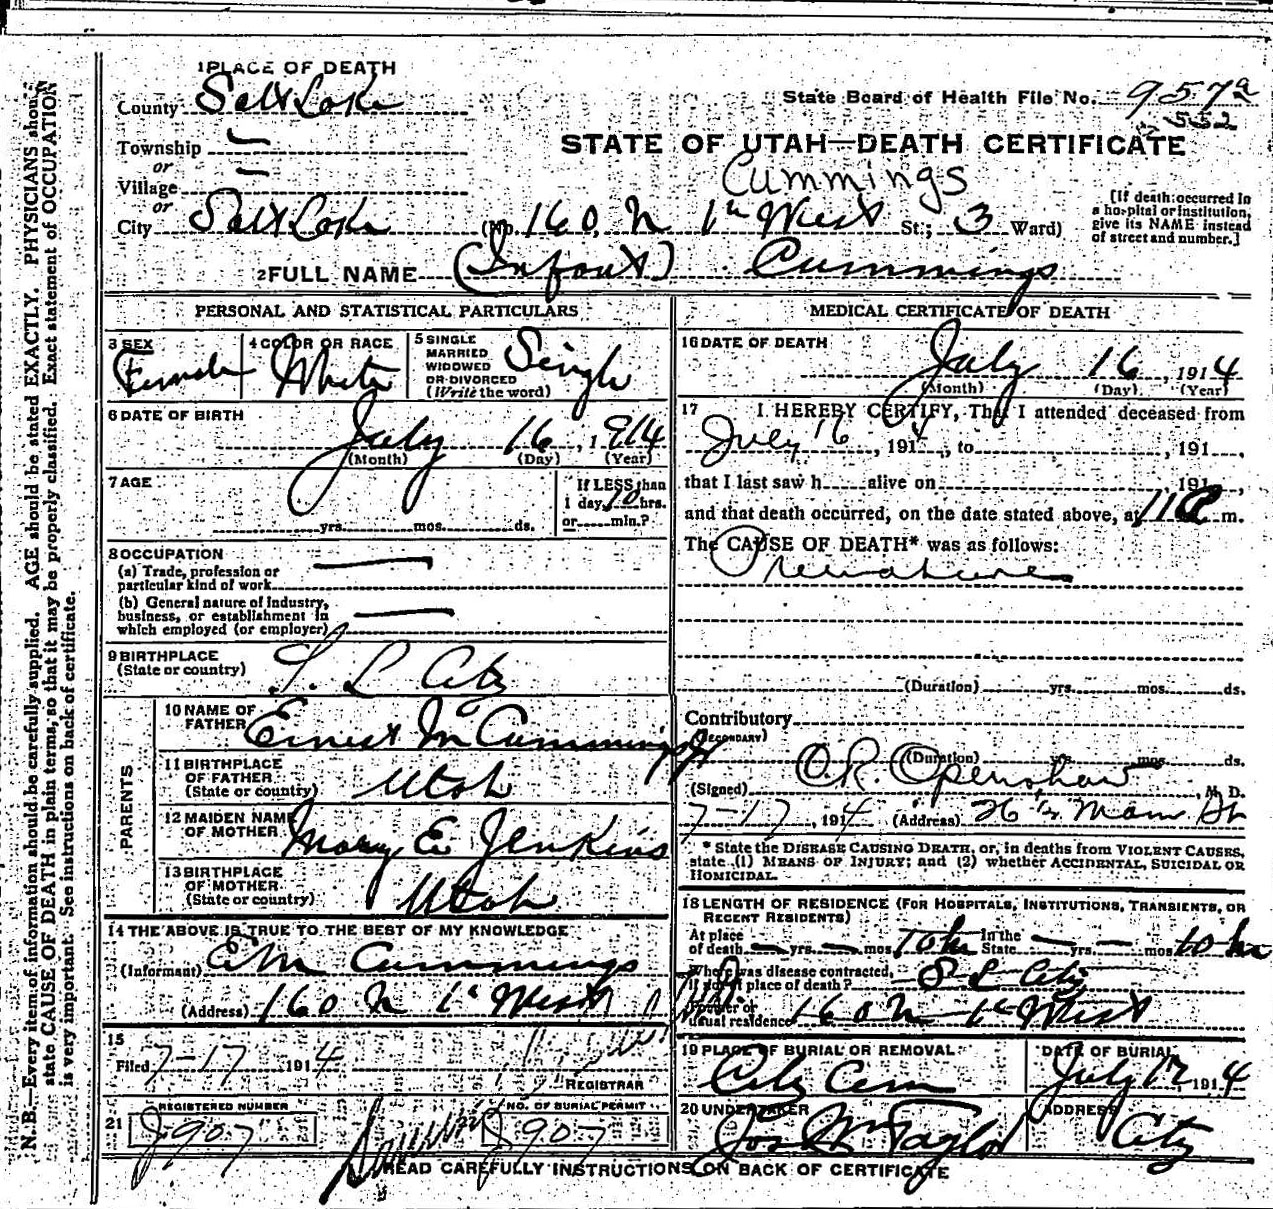 1 PLACE OF DEATH
County Salt Lake
State Board of Health File No. 957a
552
Township —
or
Village —
or
STATE OF UTAH—DEATH CERTIFICATE
Cummings
City Salt Lake (No. 160 N 1st West St; 3 Ward)
[If death occurred in
a hospital or institution,
give its NAME instead
of street and number.]
2 FULL NAME (Infant) Cummings
PERSONAL AND STATISTICAL PARTICULARS
3 SEX Female
4 COLOR OR RACE White
5 SINGLE
MARRIED
WIDOWED
OR DIVORCED
(Write the word) Single
6 DATE OF BIRTH
July 16, 1914
(Month) (Day) (Year)
7 AGE
yrs. mos. ds.
If LESS than
1 day, 10 hrs.
or min.?
8 OCCUPATION
(a) Trade, profession or
particular kind of work —
(b) General nature of industry,
business, or establishment in
which employed (or employer) —
9 BIRTHPLACE
(State or country) S. L City
PARENTS
10 NAME OF
FATHER Ernest M Cummings
11 BIRTHPLACE
OF FATHER
(State or country) Utah
12 MAIDEN NAME
OF MOTHER Mary E. Jenkins
13 BIRTHPLACE
OF MOTHER
(State or country) Utah
14 THE ABOVE IS TRUE TO THE BEST OF MY KNOWLEDGE
(Informant) E M Cummings
(Address) 160 N 1st West
15
Filed 7-17 1914
REGISTRAR
21 REGISTERED NUMBER
J907
NO. OF BURIAL PERMIT
J907
MEDICAL CERTIFICATE OF DEATH
16 DATE OF DEATH
July 16, 1914
(Month) (Day) (Year)
17 I HEREBY CERTIFY, That I attended deceased from
July 16, 1914, to , 191 ,
that I last saw h alive on , 191 ,
and that death occurred, on the date stated above, at 11 a m.
The CAUSE OF DEATH* was as follows:
Premature
(Duration) yrs. mos. ds.
Contributory
(SECONDARY)
(Duration) yrs. mos. ds.
(Signed) O.R. Openshaw, M. D.
7-17, 1914 (Address) Main St
* State the DISEASE CAUSING DEATH, or, in deaths from VIOLENT CAUSES,
state (1) MEANS OF INJURY; and (2) whether ACCIDENTAL, SUICIDAL OR
HOMICIDAL.
18 LENGTH OF RESIDENCE (FOR HOSPITALS, INSTITUTIONS, TRANSIENTS, OR
RECENT RESIDENTS)
At place
of death — yrs. — mos. 10 hr In the
State — yrs. — mos. 10 hr
Where was disease contracted,
if not at place of death? S L City
Former or
usual residence 160 N 1st West
19 PLACE OF BURIAL OR REMOVAL
City Cem
DATE OF BURIAL
July 17 1914
20 UNDERTAKER
Jos Wm Taylor
ADDRESS
City
READ CAREFULLY INSTRUCTIONS ON BACK OF CERTIFICATE
N. B.—Every item of information should be carefully supplied. AGE should be stated EXACTLY. PHYSICIANS should
state CAUSE OF DEATH in plain terms, so that it may be properly classified. Exact statement of OCCUPATION
is very important. See instructions on back of certificate.